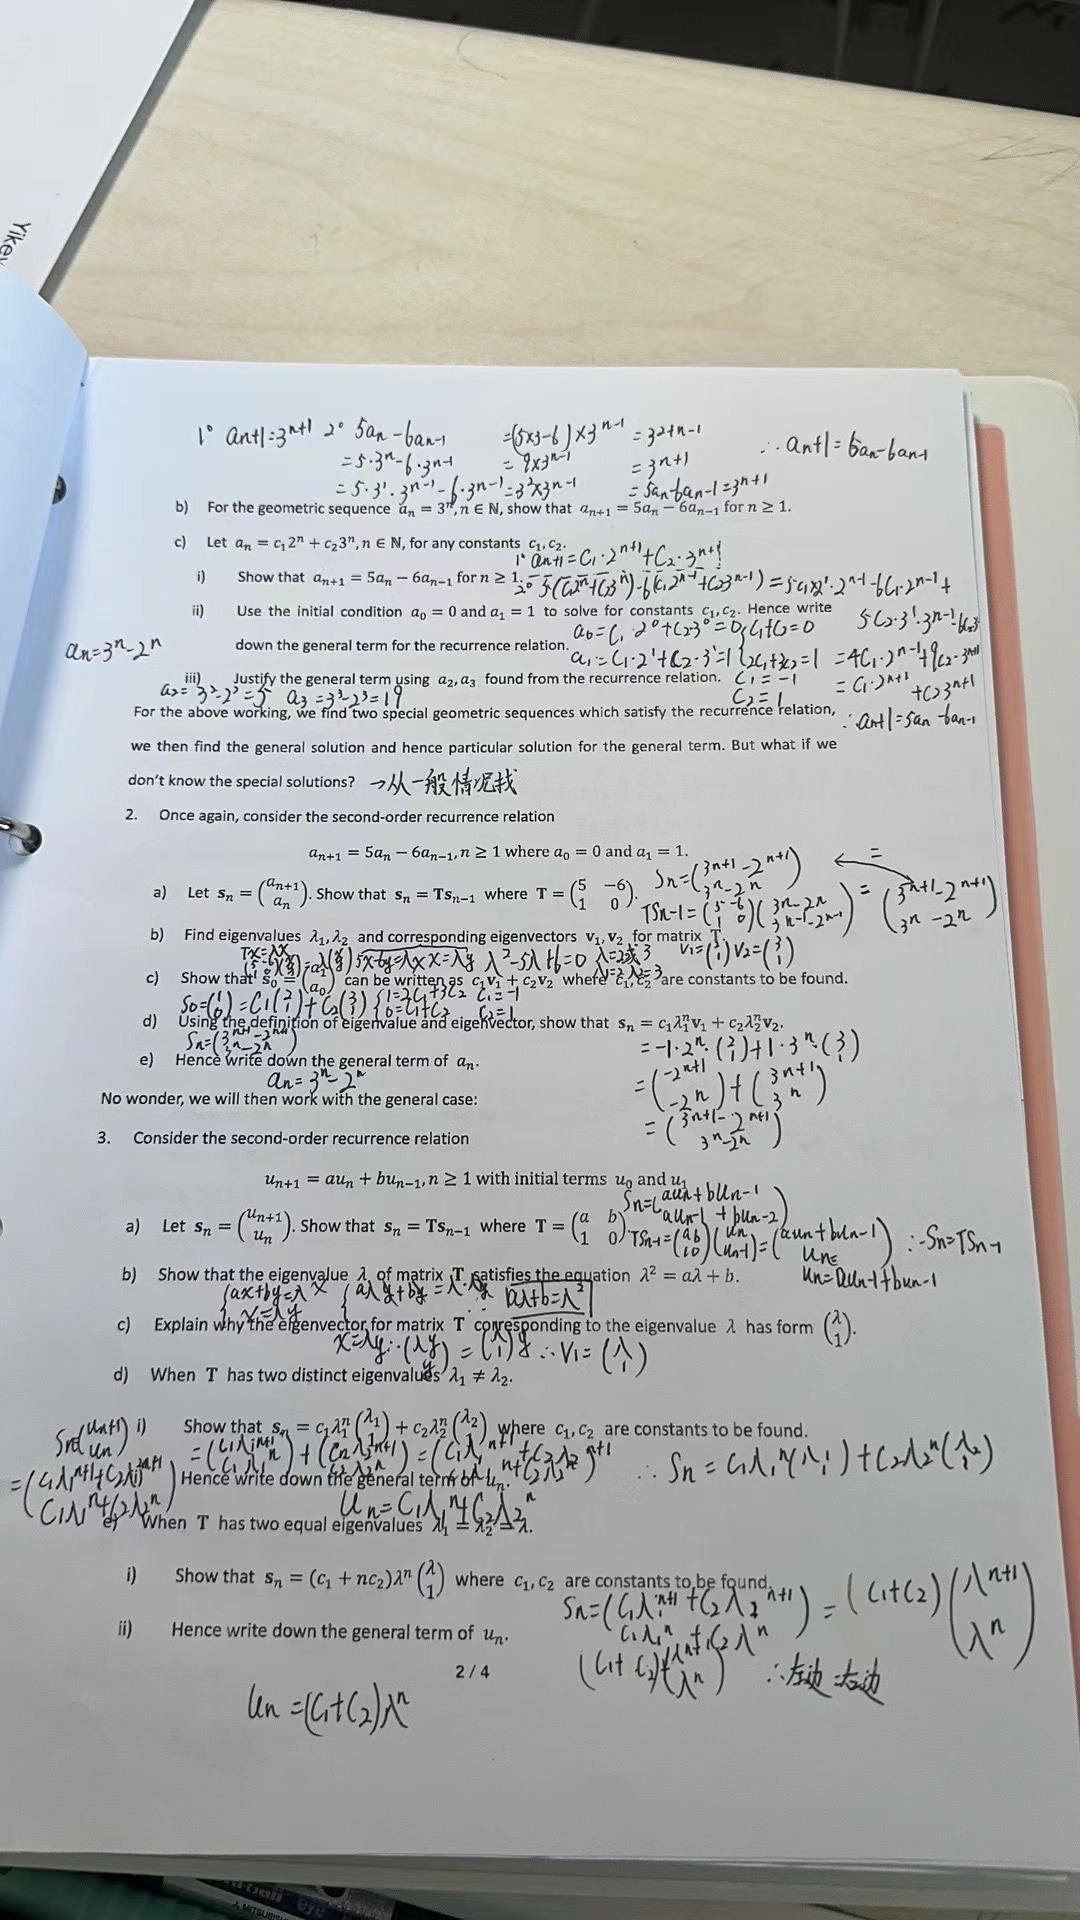 Yikey
1° an+1=3ⁿ⁺¹ 2° 5an-6an-1 =(5×3-6)×3ⁿ⁻¹ =3²⁺ⁿ⁻¹ ∴an+1=5an-6an-1
=5·3ⁿ-6·3ⁿ⁻¹ =9×3ⁿ⁻¹ =3ⁿ⁺¹
=5·3¹·3ⁿ⁻¹-6·3ⁿ⁻¹=3²×3ⁿ⁻¹ =5an-6an-1=3ⁿ⁺¹
b) For the geometric sequence aₙ = 3ⁿ, n ∈ ℕ, show that aₙ₊₁ = 5aₙ − 6aₙ₋₁ for n ≥ 1.
c) Let aₙ = c₁2ⁿ + c₂3ⁿ, n ∈ ℕ, for any constants c₁, c₂.
1° an+1=C₁·2ⁿ⁺¹+C₂·3ⁿ⁺¹
i) Show that aₙ₊₁ = 5aₙ − 6aₙ₋₁ for n ≥ 1.
2° 5(C₁2ⁿ+C₂3ⁿ)-6(C₁2ⁿ⁻¹+C₂3ⁿ⁻¹)=5·C₁·2¹·2ⁿ⁻¹-6C₁·2ⁿ⁻¹+
5C₂·3¹·3ⁿ⁻¹-6C₂3
=4C₁·2ⁿ⁻¹+9C₂·3ⁿ⁻¹
=C₁·2ⁿ⁺¹+C₂3ⁿ⁺¹
∴an+1=5an-6an-1
ii) Use the initial condition a₀ = 0 and a₁ = 1 to solve for constants c₁, c₂. Hence write
a₀=C₁·2⁰+C₂·3⁰=0 {C₁+C₂=0
down the general term for the recurrence relation.
an=3ⁿ-2ⁿ
a₁=C₁·2¹+C₂·3¹=1 {2C₁+3C₂=1
iii) Justify the general term using a₂, a₃ found from the recurrence relation.
C₁=-1
C₂=1
a₂=3²-2²=5 a₃=3³-2³=19
For the above working, we find two special geometric sequences which satisfy the recurrence relation,
we then find the general solution and hence particular solution for the general term. But what if we
don't know the special solutions? →从一般情况找
2. Once again, consider the second-order recurrence relation
aₙ₊₁ = 5aₙ − 6aₙ₋₁, n ≥ 1 where a₀ = 0 and a₁ = 1.
a) Let sₙ = (aₙ₊₁ aₙ). Show that sₙ = Tsₙ₋₁ where T = (5 −6 1 0).
Sn=(3ⁿ⁺¹-2ⁿ⁺¹ 3ⁿ-2ⁿ)
TSn-1=(5 -6 1 0)(3ⁿ-2ⁿ 3ⁿ⁻¹-2ⁿ⁻¹)=(3ⁿ⁺¹-2ⁿ⁺¹ 3ⁿ-2ⁿ)
b) Find eigenvalues λ₁, λ₂ and corresponding eigenvectors v₁, v₂ for matrix T.
Tx=λx
5x-6y=λx x=λy λ²-5λ+6=0 λ=2或3 V₁=(2 1) V₂=(3 1)
λ₁=2 λ₂=3
c) Show that s₀ = (a₁ a₀) can be written as c₁v₁ + c₂v₂ where c₁, c₂ are constants to be found.
S₀=(1 0)=C₁(2 1)+C₂(3 1) {1=2C₁+3C₂ 0=C₁+C₂ C₁=-1 C₂=1
d) Using the definition of eigenvalue and eigenvector, show that sₙ = c₁λ₁ⁿv₁ + c₂λ₂ⁿv₂.
Sn=(3ⁿ⁺¹-2ⁿ⁺¹ 3ⁿ-2ⁿ)
=-1·2ⁿ·(2 1)+1·3ⁿ·(3 1)
=(-2ⁿ⁺¹ -2ⁿ)+(3ⁿ⁺¹ 3ⁿ)
=(3ⁿ⁺¹-2ⁿ⁺¹ 3ⁿ-2ⁿ)
e) Hence write down the general term of aₙ.
an=3ⁿ-2ⁿ
No wonder, we will then work with the general case:
3. Consider the second-order recurrence relation
uₙ₊₁ = auₙ + buₙ₋₁, n ≥ 1 with initial terms u₀ and u₁
a) Let sₙ = (uₙ₊₁ uₙ). Show that sₙ = Tsₙ₋₁ where T = (a b 1 0).
Sn=(aun+bun-1 aun-1+bun-2)
TSn-1=(a b 1 0)(un un-1)=(aun+bun-1 un) ∴Sn=TSn-1
un=aun-1+bun-1
b) Show that the eigenvalue λ of matrix T satisfies the equation λ² = aλ + b.
{ax+by=λx x=λy {aλy+by=λ·λy ∴ aλ+b=λ²
c) Explain why the eigenvector for matrix T corresponding to the eigenvalue λ has form (λ 1).
x=λy ∴(λy y)=(λ 1)y ∴V₁=(λ 1)
d) When T has two distinct eigenvalues λ₁ ≠ λ₂.
i) Show that sₙ = c₁λ₁ⁿ(λ₁ 1) + c₂λ₂ⁿ(λ₂ 1) where c₁, c₂ are constants to be found.
Sn=(un+1 un)
=(C₁λ₁ⁿ⁺¹+C₂λ₂ⁿ⁺¹ C₁λ₁ⁿ+C₂λ₂ⁿ)
=(C₁λ₁ⁿ⁺¹ C₁λ₁ⁿ)+(C₂λ₂ⁿ⁺¹ C₂λ₂ⁿ)=(C₁λ₁ⁿ⁺¹+C₂λ₂ⁿ⁺¹ C₁λ₁ⁿ+C₂λ₂ⁿ) ∴Sn=C₁λ₁ⁿ(λ₁ 1)+C₂λ₂ⁿ(λ₂ 1)
Hence write down the general term of uₙ.
Un=C₁λ₁ⁿ+C₂λ₂ⁿ
e) When T has two equal eigenvalues λ₁ = λ₂ = λ.
i) Show that sₙ = (c₁ + nc₂)λⁿ(λ 1) where c₁, c₂ are constants to be found.
Sn=(C₁λ₁ⁿ⁺¹+C₂λ₂ⁿ⁺¹ C₁λ₁ⁿ+C₂λⁿ)=(C₁+C₂)(λⁿ⁺¹ λⁿ)
ii) Hence write down the general term of uₙ.
(C₁+C₂)(λⁿ⁺¹ λⁿ) ∴左边=右边
2 / 4
Un=(C₁+C₂)λⁿ
eye
MITSUBISH